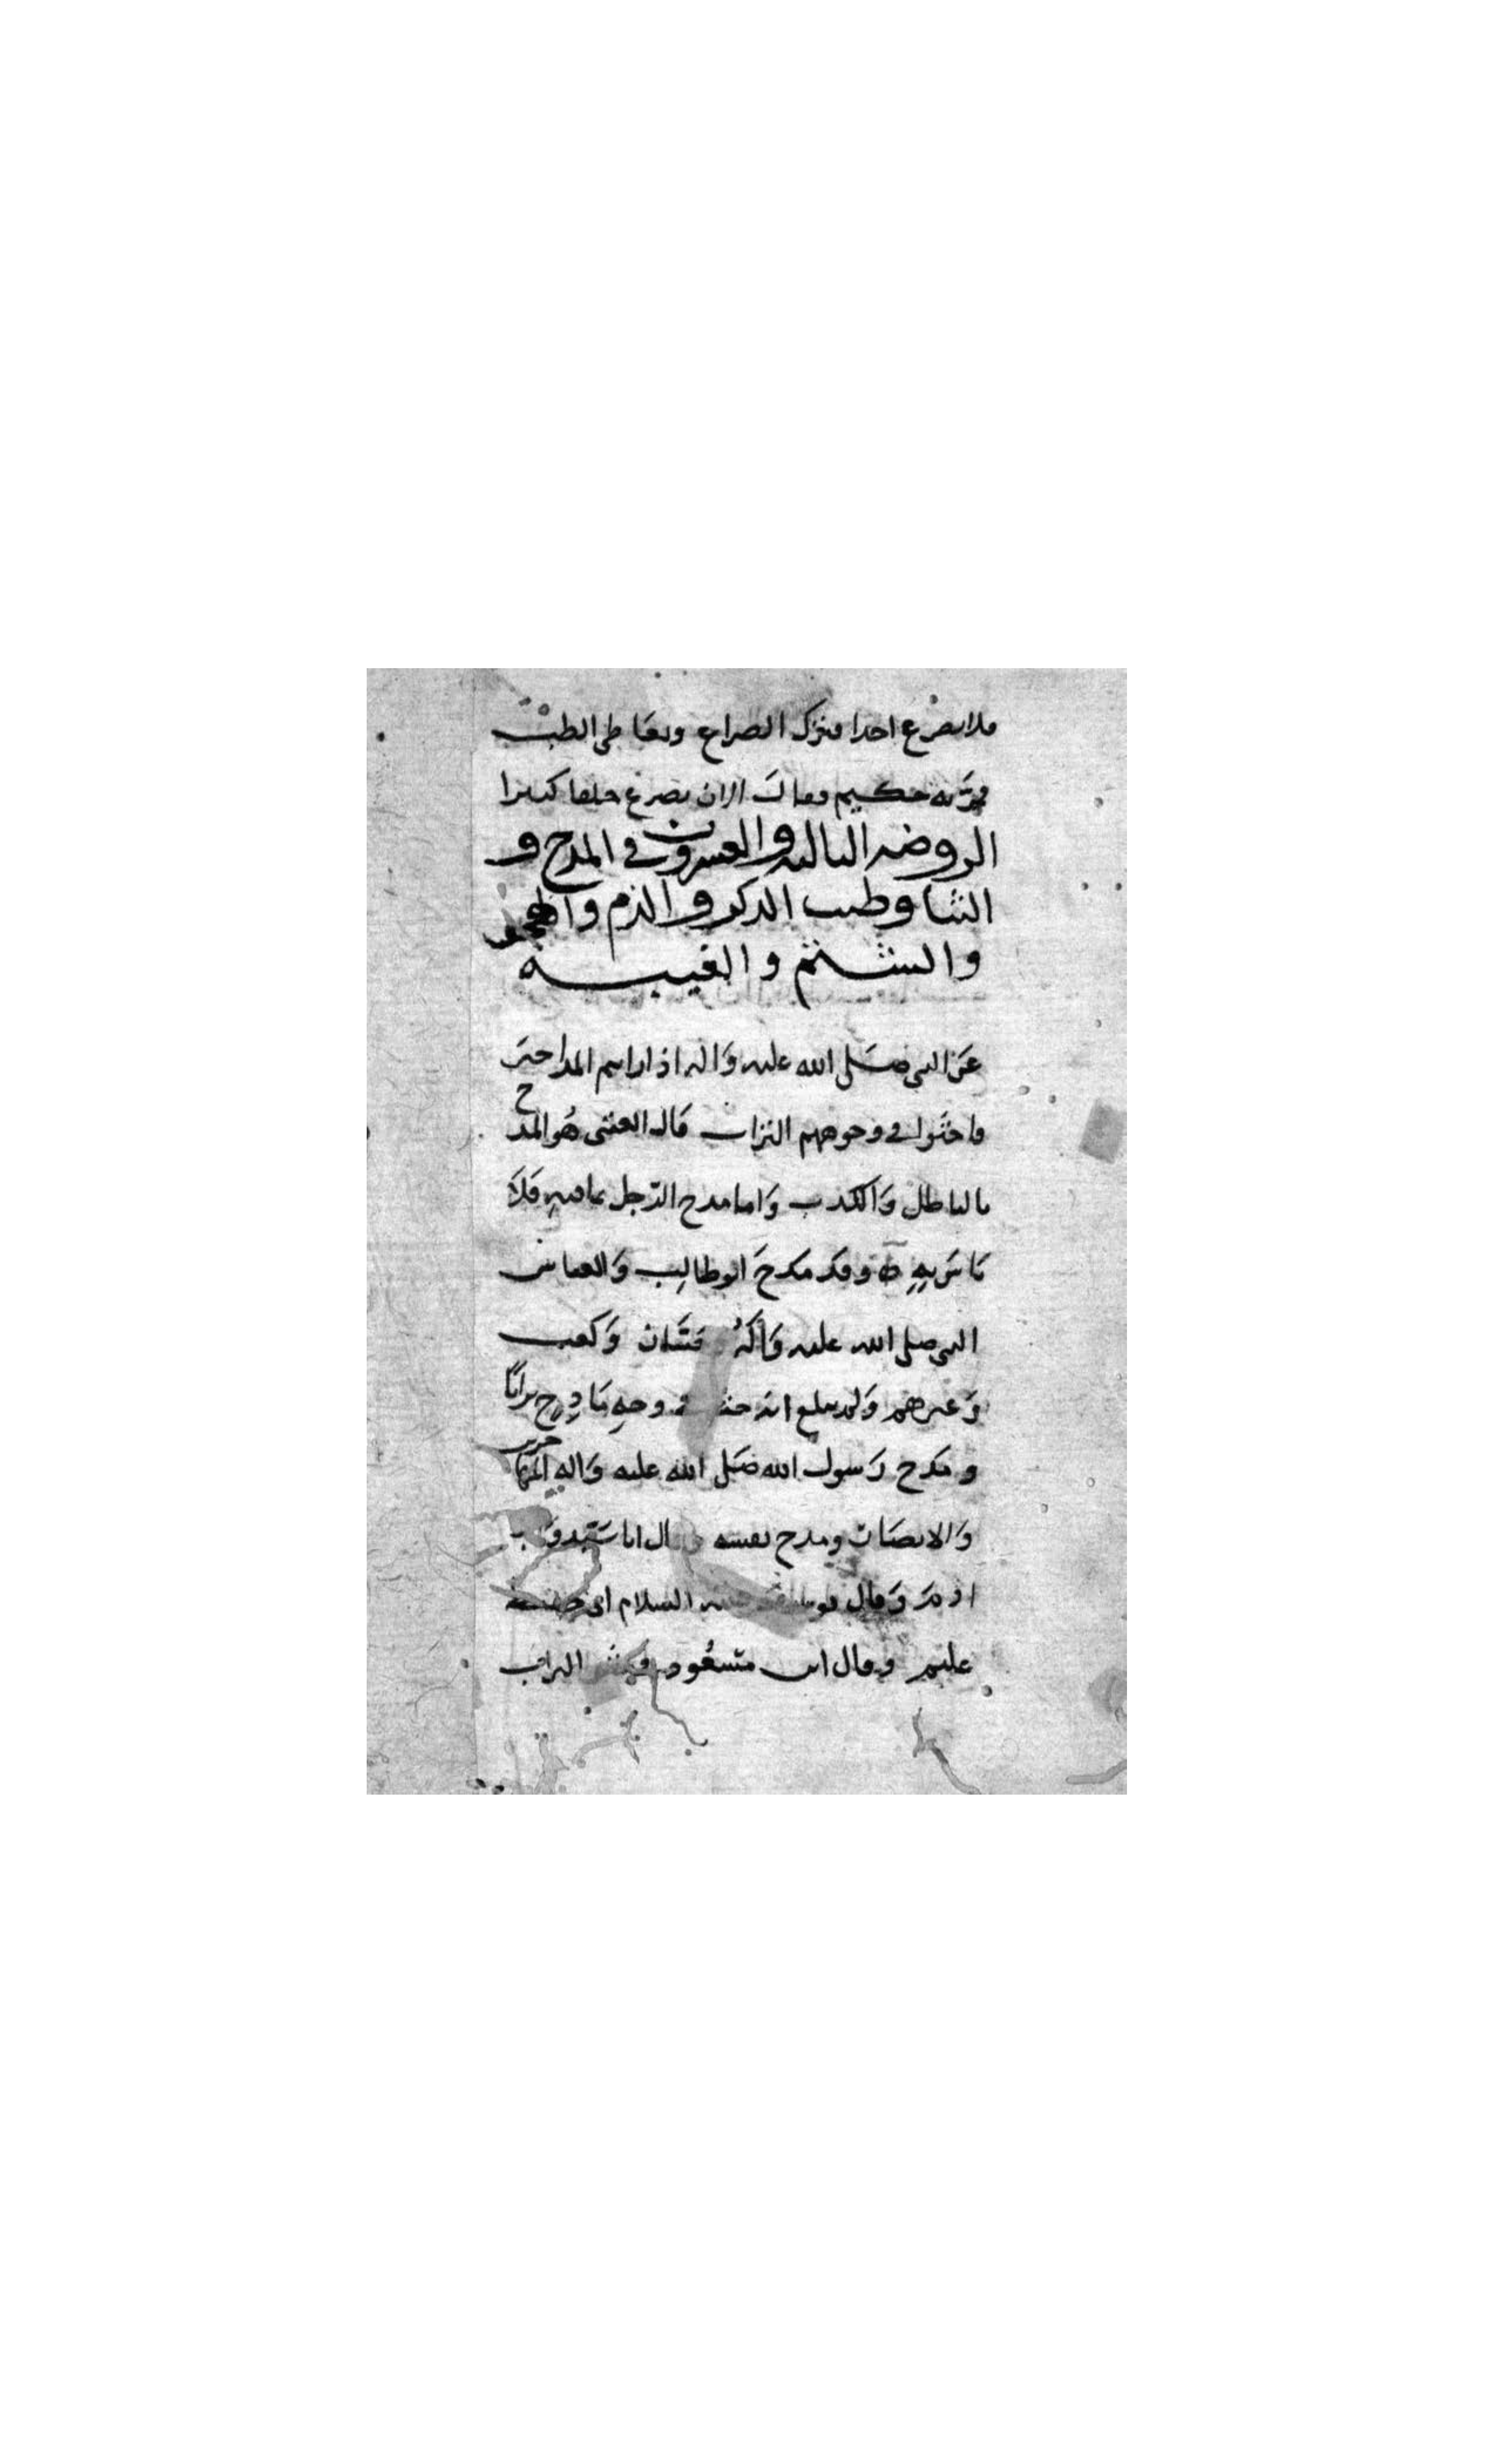 فلا يصرع احدا فترك الصراع وتعاطى الطب
فمر به حكيم فقال الان تصرع خلقا كثيرا
الروضه الثالثه والعشرون في المدح و
الثنا وطيب الذكر والذم والهجو
والشتم والغيبه
عن النبي صلى الله عليه واله اذا رايتم المداحين
فاحثوا في وجوههم التراب قال العتبى هو المدح
بالباطل والكذب واما مدح الرجل بما فيه فلا
باس به وقد مدح ابو طالب والعباس
النبي صلى الله عليه واله وحسان وكعب
وغيرهم ولم يبلغ انه حثا في وجه مادح ترابا
ومدح رسول الله صلى الله عليه واله المهاجرين
والانصار ومدح نفسه فقال انا سيد ولد
ادم وقال يوسف عليه السلام اني حفيظ
عليم وقال ابن مسعود التراب